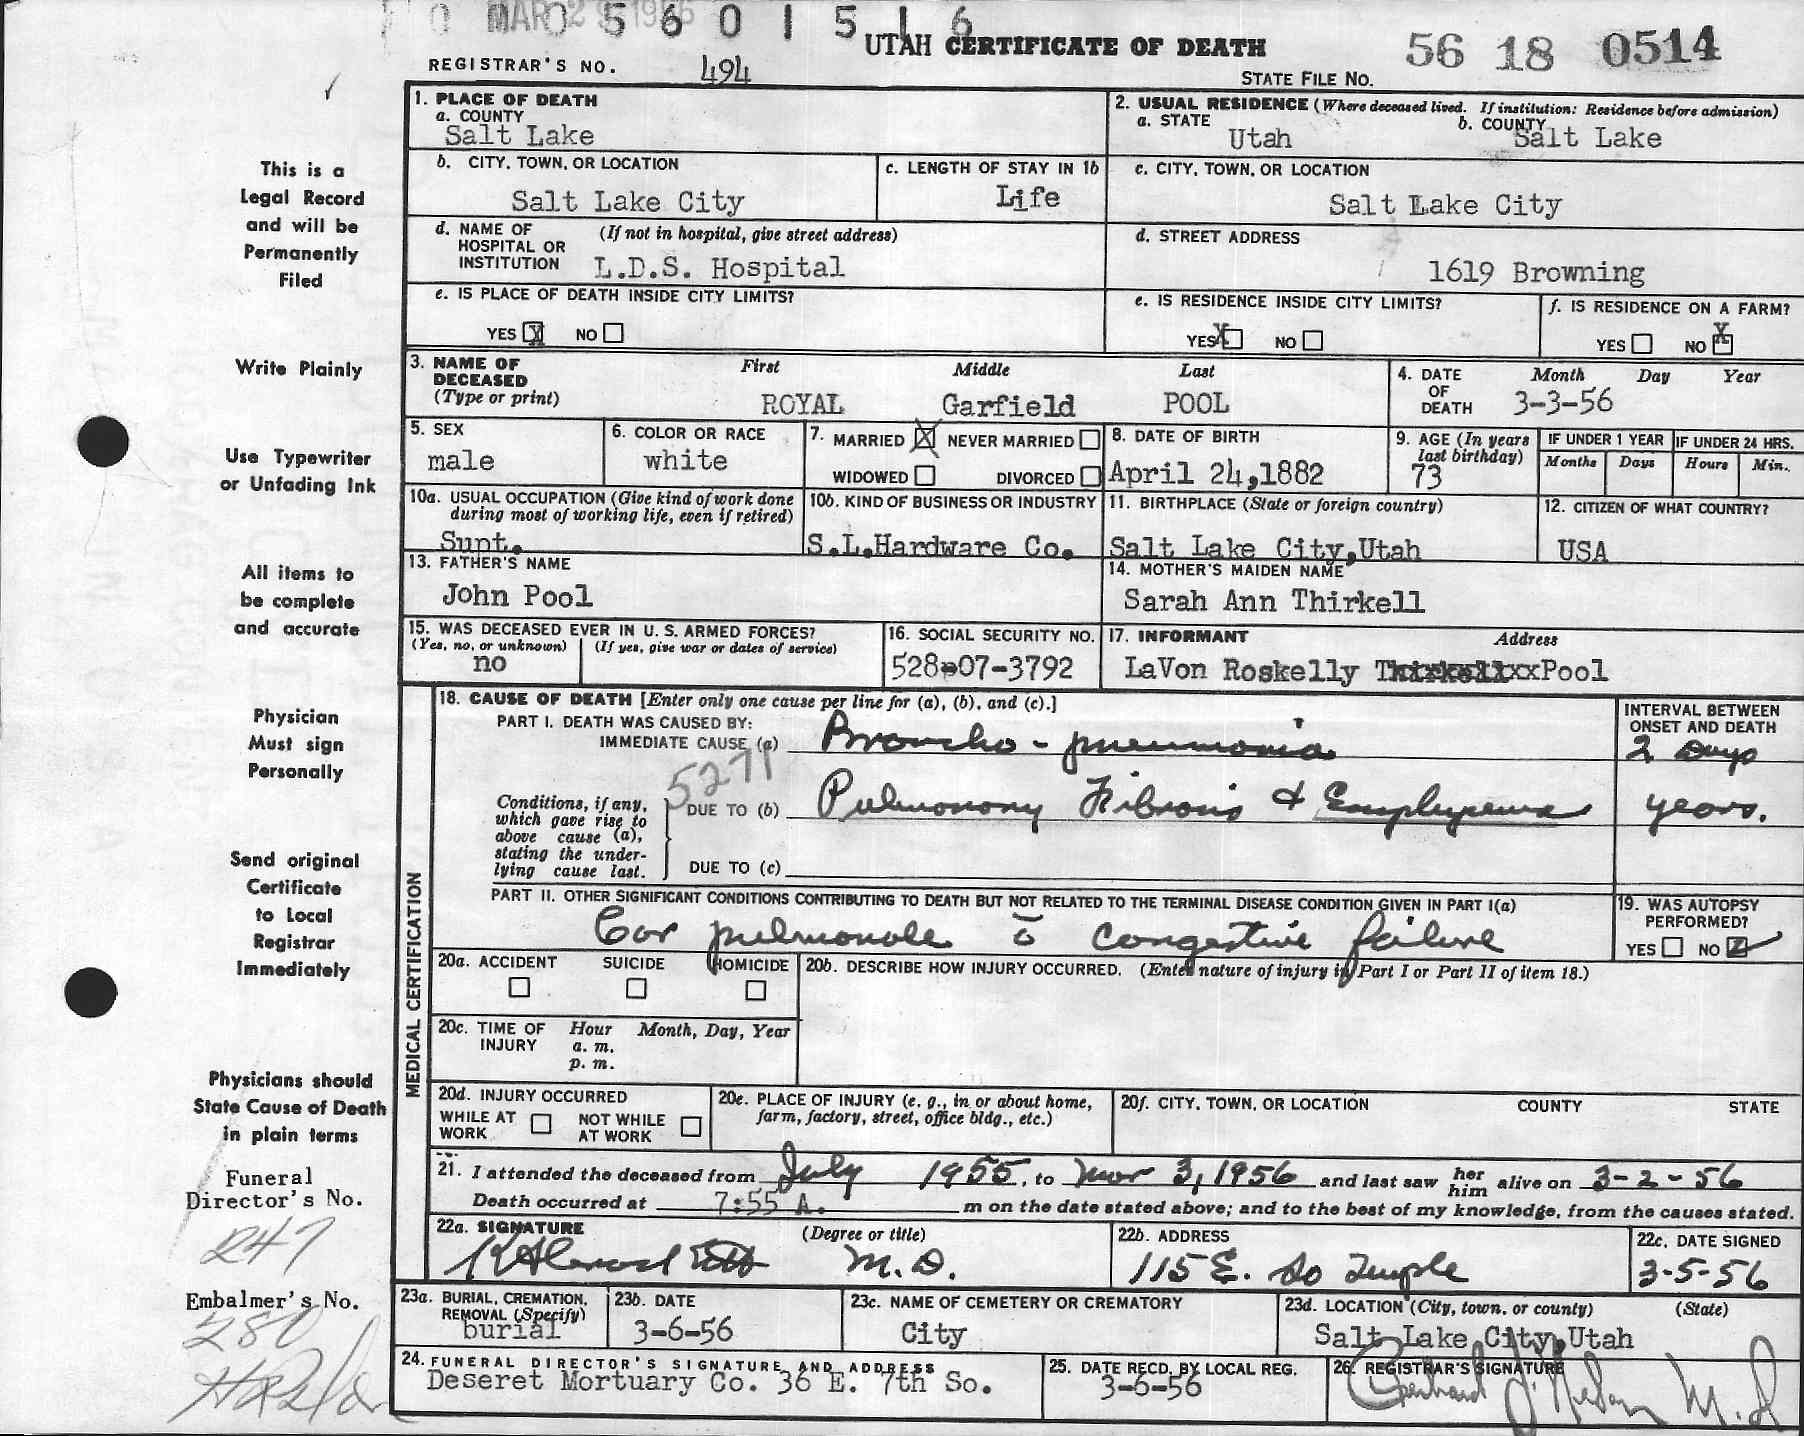 MAR 2 1956
0 5 6 0 1 5 1 6
UTAH CERTIFICATE OF DEATH
56 18 0514
REGISTRAR'S NO. 494
STATE FILE NO.
1. PLACE OF DEATH
a. COUNTY
Salt Lake
2. USUAL RESIDENCE (Where deceased lived. If institution: Residence before admission)
a. STATE Utah b. COUNTY Salt Lake
b. CITY, TOWN, OR LOCATION
Salt Lake City
c. LENGTH OF STAY IN 1b
Life
c. CITY, TOWN, OR LOCATION
Salt Lake City
d. NAME OF HOSPITAL OR INSTITUTION (If not in hospital, give street address)
L.D.S. Hospital
d. STREET ADDRESS
1619 Browning
e. IS PLACE OF DEATH INSIDE CITY LIMITS?
YES X NO
e. IS RESIDENCE INSIDE CITY LIMITS?
YES X NO
f. IS RESIDENCE ON A FARM?
YES NO X
3. NAME OF DECEASED (Type or print)
First Middle Last
ROYAL Garfield POOL
4. DATE OF DEATH Month Day Year
3-3-56
5. SEX
male
6. COLOR OR RACE
white
7. MARRIED X NEVER MARRIED
WIDOWED DIVORCED
8. DATE OF BIRTH
April 24,1882
9. AGE (In years last birthday)
73
IF UNDER 1 YEAR IF UNDER 24 HRS.
Months Days Hours Min.
10a. USUAL OCCUPATION (Give kind of work done during most of working life, even if retired)
Supt.
10b. KIND OF BUSINESS OR INDUSTRY
S.L.Hardware Co.
11. BIRTHPLACE (State or foreign country)
Salt Lake City,Utah
12. CITIZEN OF WHAT COUNTRY?
USA
13. FATHER'S NAME
John Pool
14. MOTHER'S MAIDEN NAME
Sarah Ann Thirkell
15. WAS DECEASED EVER IN U. S. ARMED FORCES?
(Yes, no, or unknown) (If yes, give war or dates of service)
no
16. SOCIAL SECURITY NO.
528-07-3792
17. INFORMANT Address
LaVon Roskelly Thirkellxx Pool
MEDICAL CERTIFICATION
18. CAUSE OF DEATH [Enter only one cause per line for (a), (b), and (c).]
PART I. DEATH WAS CAUSED BY:
IMMEDIATE CAUSE (a) Broncho-pneumonia
INTERVAL BETWEEN ONSET AND DEATH
2 Days
5271
Conditions, if any, which gave rise to above cause (a), stating the underlying cause last.
DUE TO (b) Pulmonary Fibrosis & Emphysema
years.
DUE TO (c)
PART II. OTHER SIGNIFICANT CONDITIONS CONTRIBUTING TO DEATH BUT NOT RELATED TO THE TERMINAL DISEASE CONDITION GIVEN IN PART I(a)
Cor pulmonale c̄ congestive failure
19. WAS AUTOPSY PERFORMED?
YES NO
20a. ACCIDENT SUICIDE HOMICIDE
20b. DESCRIBE HOW INJURY OCCURRED. (Enter nature of injury in Part I or Part II of item 18.)
20c. TIME OF INJURY Hour Month, Day, Year
a. m.
p. m.
20d. INJURY OCCURRED
WHILE AT WORK NOT WHILE AT WORK
20e. PLACE OF INJURY (e. g., in or about home, farm, factory, street, office bldg., etc.)
20f. CITY, TOWN, OR LOCATION COUNTY STATE
21. I attended the deceased from July 1955, to Mar 3, 1956 and last saw her him alive on 3-2-56
Death occurred at 7:55 A. m on the date stated above; and to the best of my knowledge, from the causes stated.
22a. SIGNATURE (Degree or title)
M.D.
22b. ADDRESS
115 E. So Temple
22c. DATE SIGNED
3-5-56
23a. BURIAL, CREMATION, REMOVAL (Specify)
burial
23b. DATE
3-6-56
23c. NAME OF CEMETERY OR CREMATORY
City
23d. LOCATION (City, town, or county) (State)
Salt Lake City,Utah
24. FUNERAL DIRECTOR'S SIGNATURE AND ADDRESS
Deseret Mortuary Co. 36 E. 7th So.
25. DATE RECD. BY LOCAL REG.
3-6-56
26. REGISTRAR'S SIGNATURE
M.D
This is a
Legal Record
and will be
Permanently
Filed
Write Plainly
Use Typewriter
or Unfading Ink
All items to
be complete
and accurate
Physician
Must sign
Personally
Send original
Certificate
to Local
Registrar
Immediately
Physicians should
State Cause of Death
in plain terms
Funeral
Director's No.
247
Embalmer's No.
280